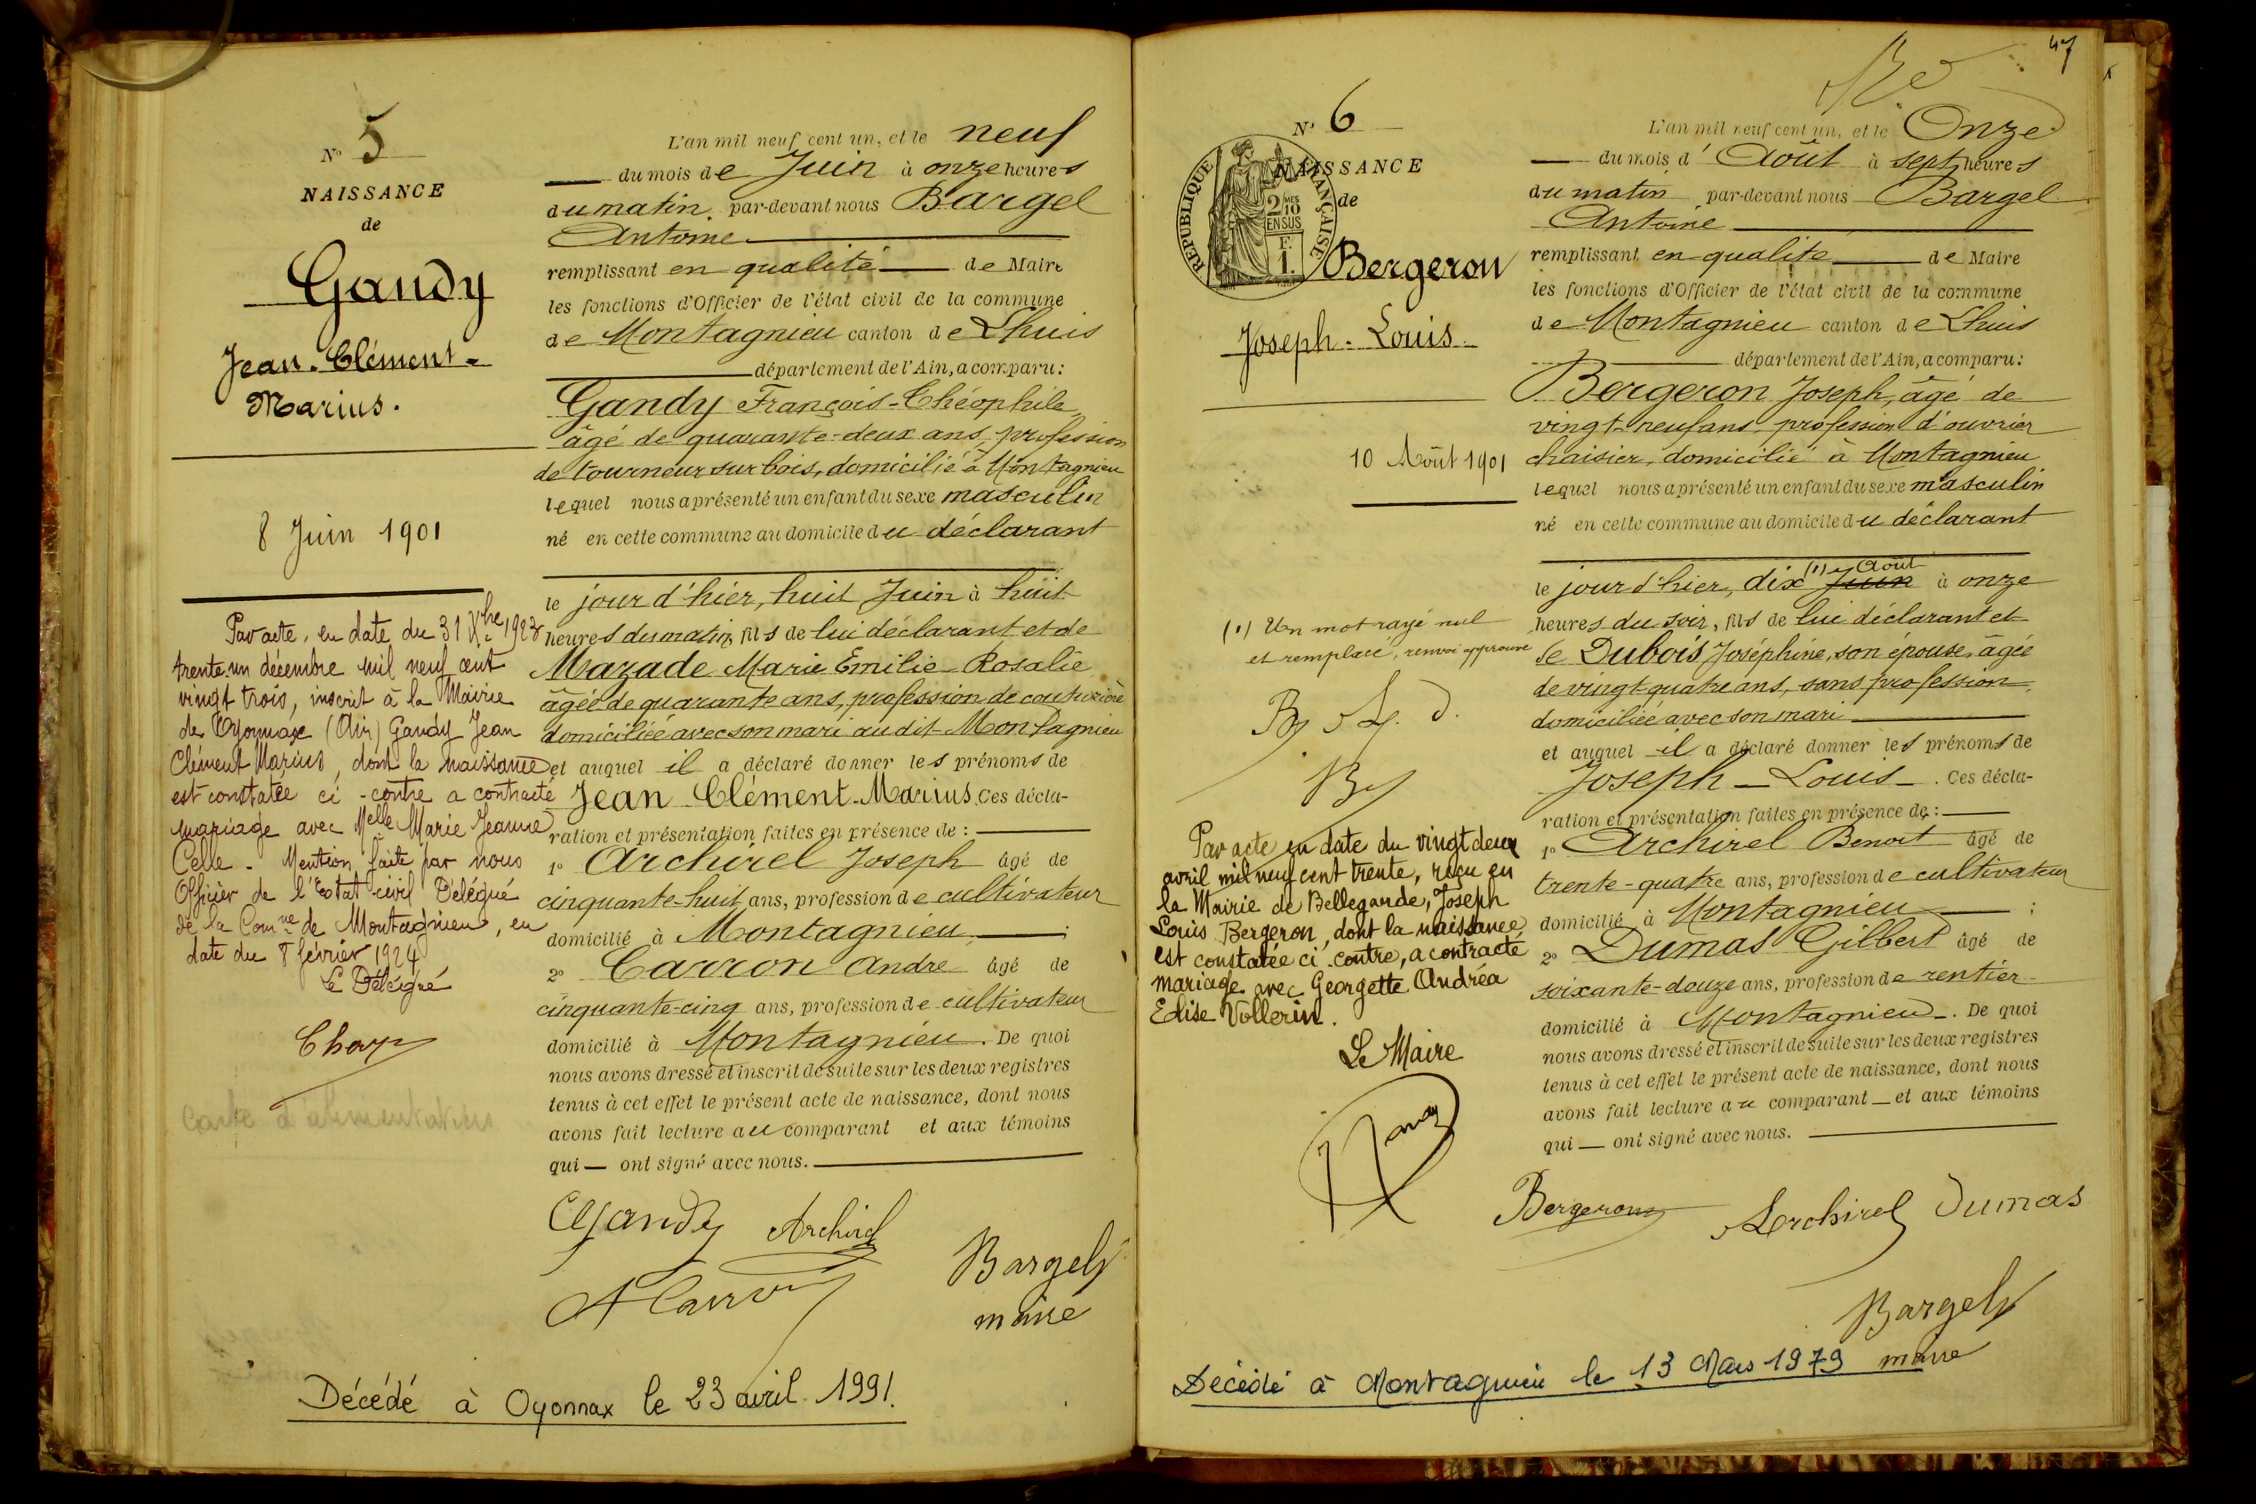 Nº 5
NAISSANCE
de
Gandy
Jean-Clément-
Marius.
8 Juin 1901
Par acte, en date du 31 Xbre 1923
trente un décembre mil neuf cent
vingt trois, inscrit à la Mairie
de Oyonnax (Ain) Gandy Jean
Clément Marius, dont la naissance
est constatée ci-contre a contracté
mariage avec Melle Marie Jeanne
Celle. Mention faite par nous
Officier de l'Etat civil Délégué
de la Comne de Montagnieu, en
date du 8 février 1924
Le Délégué
Carte d'alimentation
L'an mil neuf cent un, et le neuf
du mois de Juin à onze heures
du matin, par-devant nous Bargel
Antoine
remplissant en qualité de Maire
les fonctions d'Officier de l'état civil de la commune
de Montagnieu canton de Lhuis
département de l'Ain, a comparu:
Gandy François-Théophile
âgé de quarante-deux ans, profession
de tourneur sur bois, domicilié à Montagnieu
lequel nous a présenté un enfant du sexe masculin
né en cette commune au domicile du déclarant
le jour d'hier, huit Juin à huit
heures du matin, fils de lui déclarant et de
Mazade Marie Emilie Rosalie
âgée de quarante ans, profession de couturière
domiciliée avec son mari au dit Montagnieu
et auquel il a déclaré donner les prénoms de
Jean Clément-Marius. Ces décla-
ration et présentation faites en présence de :
1º Archirel Joseph âgé de
cinquante-huit ans, profession de cultivateur
domicilié à Montagnieu ;
2º Carron André âgé de
cinquante-cinq ans, profession de cultivateur
domicilié à Montagnieu. De quoi
nous avons dressé et inscrit de suite sur les deux registres
tenus à cet effet le présent acte de naissance, dont nous
avons fait lecture au comparant et aux témoins
qui — ont signé avec nous.
Gandy Archirel
A Carron
Bargel
maire
Décédé à Oyonnax le 23 avril 1991.
47
Nº 6
NAISSANCE
de
RÉPUBLIQUE FRANÇAISE
2/10 MES
EN SUS
F.
1.
Bergeron
Joseph-Louis
10 Août 1901
(1) Un mot rayé nul
et remplacé, renvoi approuvé
Par acte en date du vingt deux
avril mil neuf cent trente, reçu en
la Mairie de Bellegarde, Joseph
Louis Bergeron, dont la naissance
est constatée ci-contre, a contracté
mariage avec Georgette Andréa
Elise Vollerin.
Le Maire
L'an mil neuf cent un, et le Onze
du mois d'Août à sept heures
du matin par-devant nous Bargel
Antoine
remplissant en qualité de Maire
les fonctions d'Officier de l'état civil de la commune
de Montagnieu canton de Lhuis
département de l'Ain, a comparu:
Bergeron Joseph, âgé de
vingt-neuf ans, profession d'ouvrier
chaisier, domicilié à Montagnieu
lequel nous a présenté un enfant du sexe masculin
né en cette commune au domicile du déclarant
le jour d'hier, dix (1) Juin Août à onze
heures du soir, fils de lui déclarant et
de Dubois Joséphine, son épouse, âgée
de vingt-quatre ans, sans profession,
domiciliée avec son mari
et auquel il a déclaré donner les prénoms de
Joseph-Louis. Ces décla-
ration et présentation faites en présence de :
1º Archirel Benoit âgé de
trente-quatre ans, profession de cultivateur
domicilié à Montagnieu ;
2º Dumas Gilbert âgé de
soixante-douze ans, profession de rentier
domicilié à Montagnieu. De quoi
nous avons dressé et inscrit de suite sur les deux registres
tenus à cet effet le présent acte de naissance, dont nous
avons fait lecture au comparant — et aux témoins
qui — ont signé avec nous.
Bergeron Archirel Dumas
Bargel
maire
Décédé à Montagnieu le 13 Mars 1979